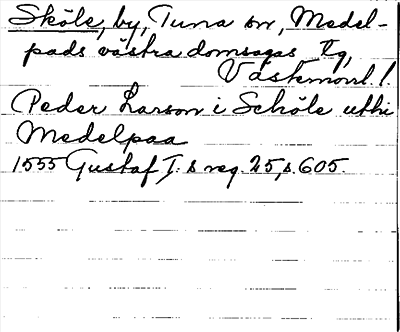 Sköle, by, Tuna sn, Medel-
pads västra domsagas tg,
Västernorrl. l.
Peder Larson i Schöle uthi
Medelpaa
1555 Gustaf I:s reg. 25, s. 605.